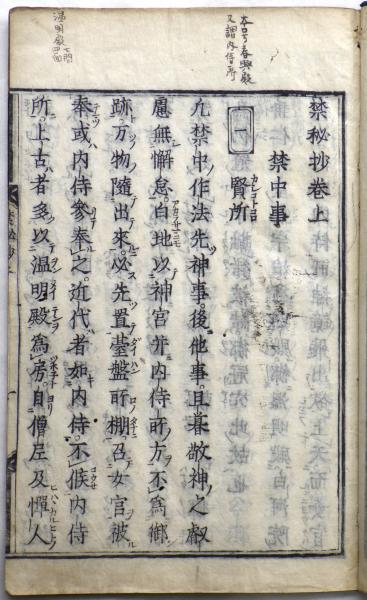 本号春興殿
又謂内侍所
温明殿七間四面
禁秘抄巻上
禁中事
一
賢所
カシコトコロ
凡禁中作法先神事後他事旦暮敬神之叡
慮無懈怠白地以神宮并内侍所方不為御
跡万物随出来必先置䑓盤所棚召女官被
奉或内侍参奉之近代者如内侍不候内侍
所上古者多以温明殿為房自僧尼及憚人